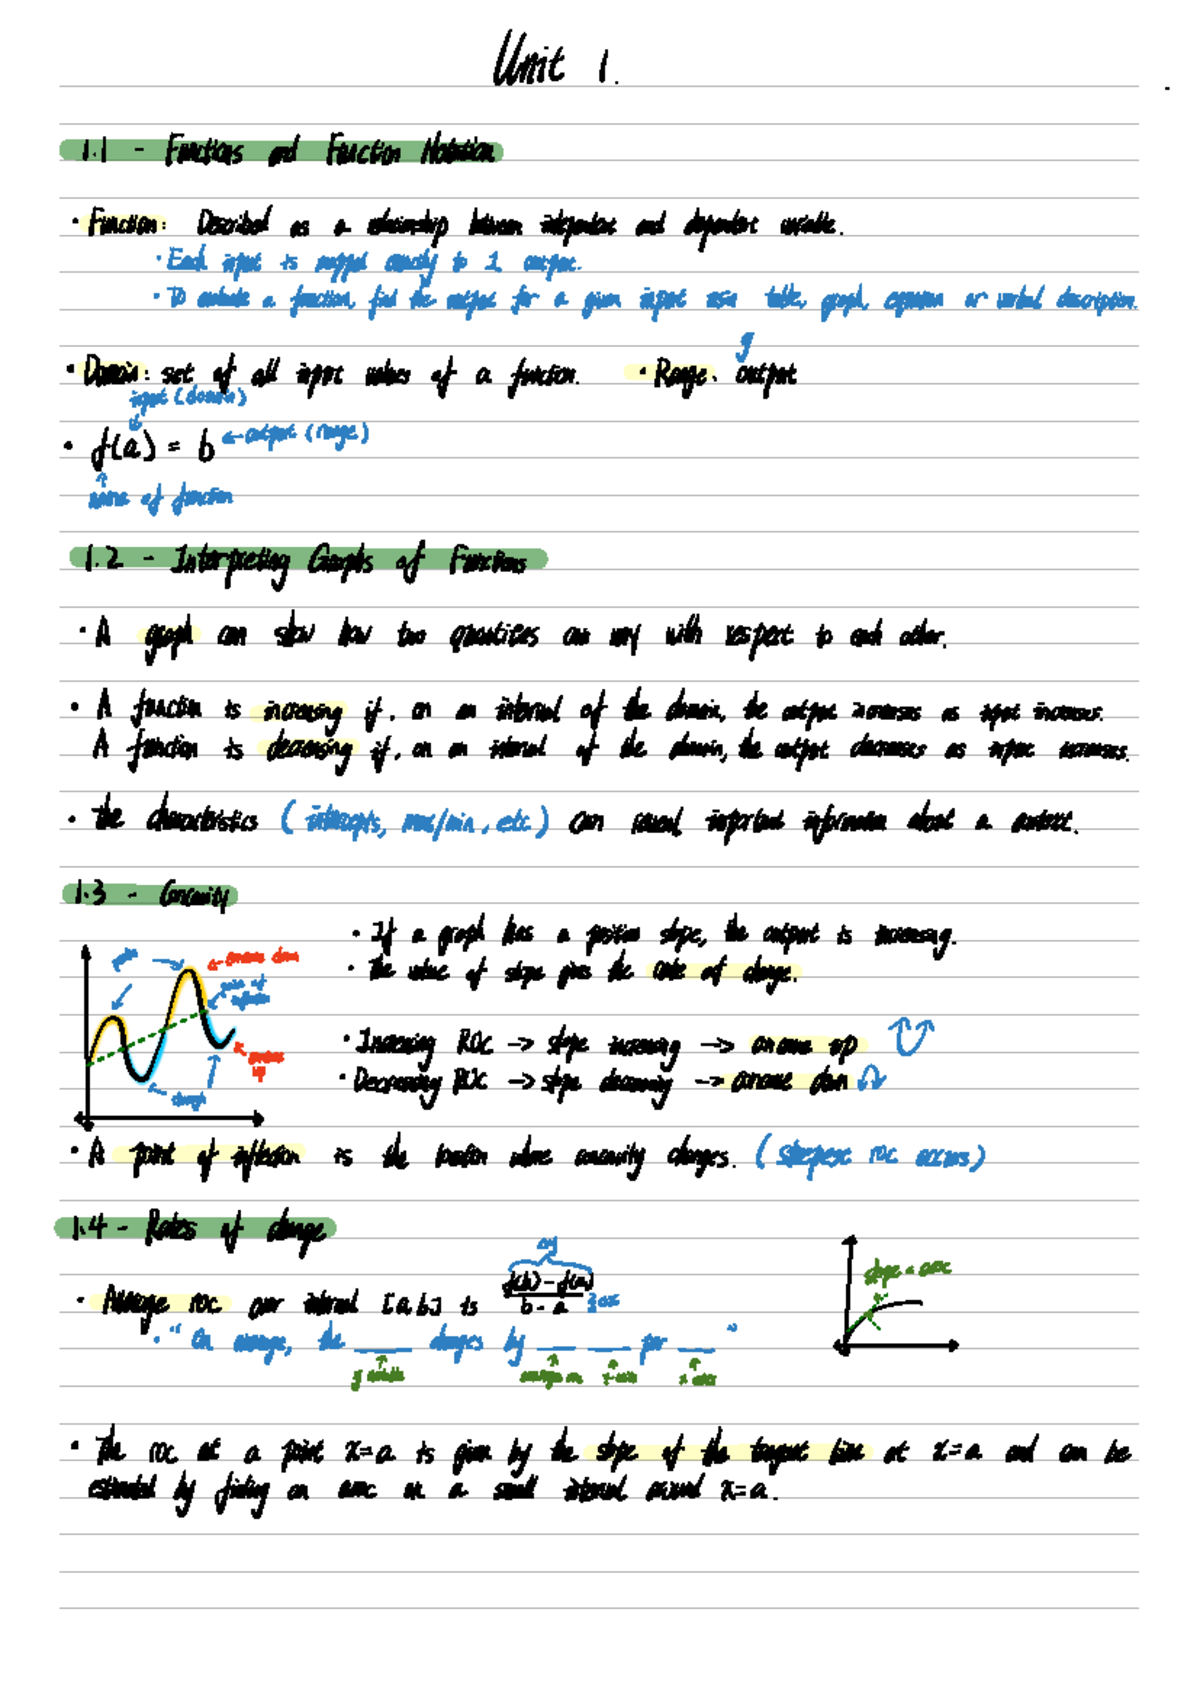 Unit 1.
1.1 - Functions and Function Notation
• Function: Described as a relationship between independent and dependent variable.
• Each input is mapped exactly to 1 output.
• To evaluate a function, find the output for a given input using table, graph, equation or verbal description.
y
• Domain: set of all input values of a function. • Range: output
input (domain)
• f(a) = b ← output (range)
name of function
1.2 - Interpreting Graphs of Functions
• A graph can show how two quantities can vary with respect to each other.
• A function is increasing if, on an interval of the domain, the output increases as input increases.
A function is decreasing if, on an interval of the domain, the output decreases as input increases.
• The characteristics (intercepts, max/min, etc.) can reveal important information about a context.
1.3 - Concavity
• If a graph has a positive slope, the output is increasing.
• The value of slope gives the rate of change.
concave down
point of inflection
concave up
• Increasing ROC → slope increasing → concave up
• Decreasing ROC → slope decreasing → concave down
• A point of inflection is the location where concavity changes. (steepest roc occurs)
1.4 - Rates of change
Δy
• Average roc over interval [a,b] is f(b) - f(a) / b - a } Δx
slope = aroc
• "On average, the ___ changes by ___ ___ per ___"
y variable
• The roc at a point x=a is given by the slope of the tangent line at x=a and can be
estimated by finding an aroc on a small interval around x=a.